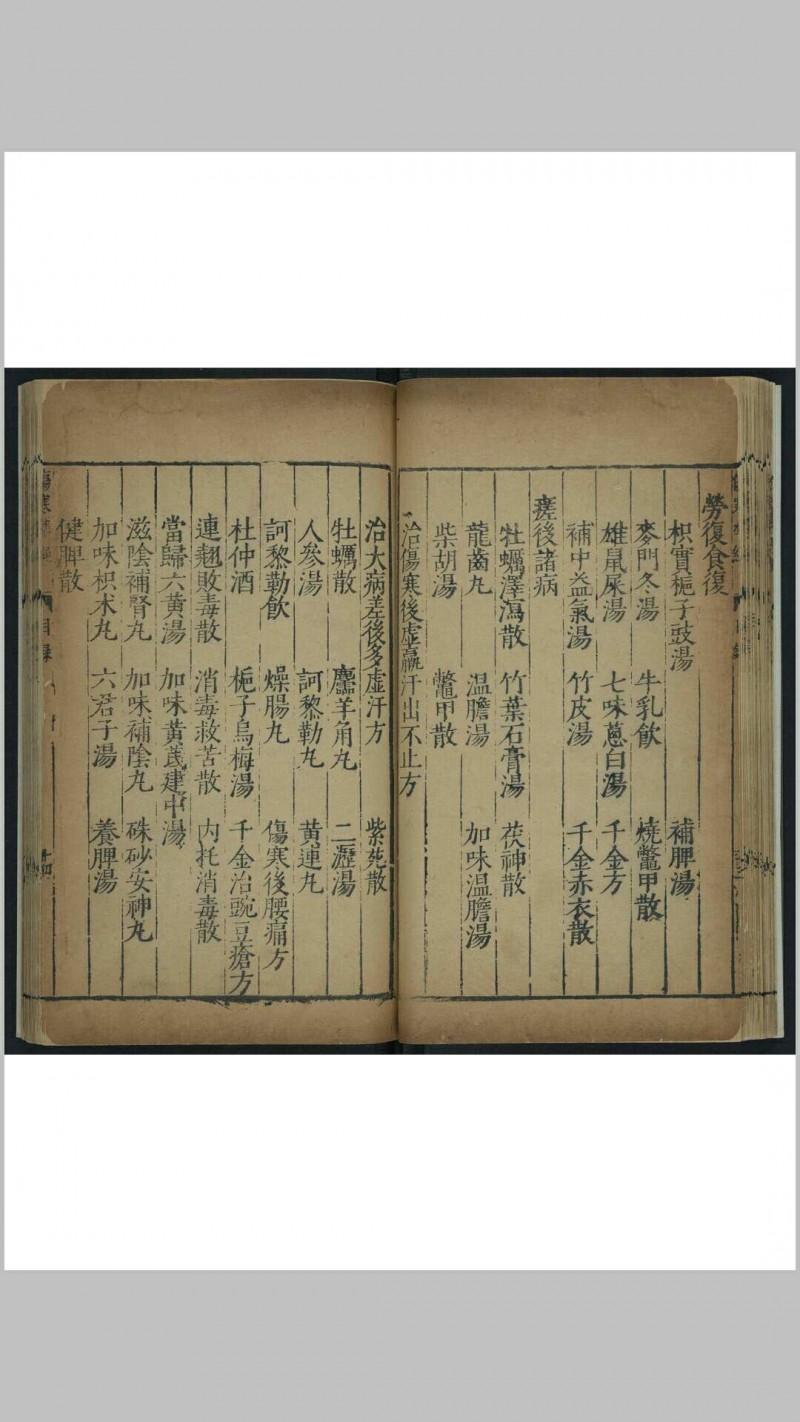 勞復食復
枳實梔子豉湯 補脾湯
麥門冬湯 牛乳飲 燒鼈甲散
雄鼠屎湯 七味蔥白湯 千金方
補中益氣湯 竹皮湯 千金赤衣散
瘥後諸病
牡蠣澤瀉散 竹葉石膏湯 茯神散
龍齒丸 温膽湯 加味温膽湯
柴胡湯 鼈甲散
治傷寒後虛羸汗出不止方
治大病差後多虛汗方 紫菀散
牡蠣散 麢羊角丸 二瀝湯
人參湯 訶黎勒丸 黃連丸
訶黎勒飲 燥腸丸 傷寒後腰痛方
杜仲酒 梔子烏梅湯 千金治豌豆瘡方
連翹敗毒散 消毒救苦散 内托消毒散
當歸六黃湯 加味黃芪建中湯
滋陰補腎丸 加味補陰丸 硃砂安神丸
加味枳术丸 六君子湯 養脾湯
健脾散
傷寒 目錄